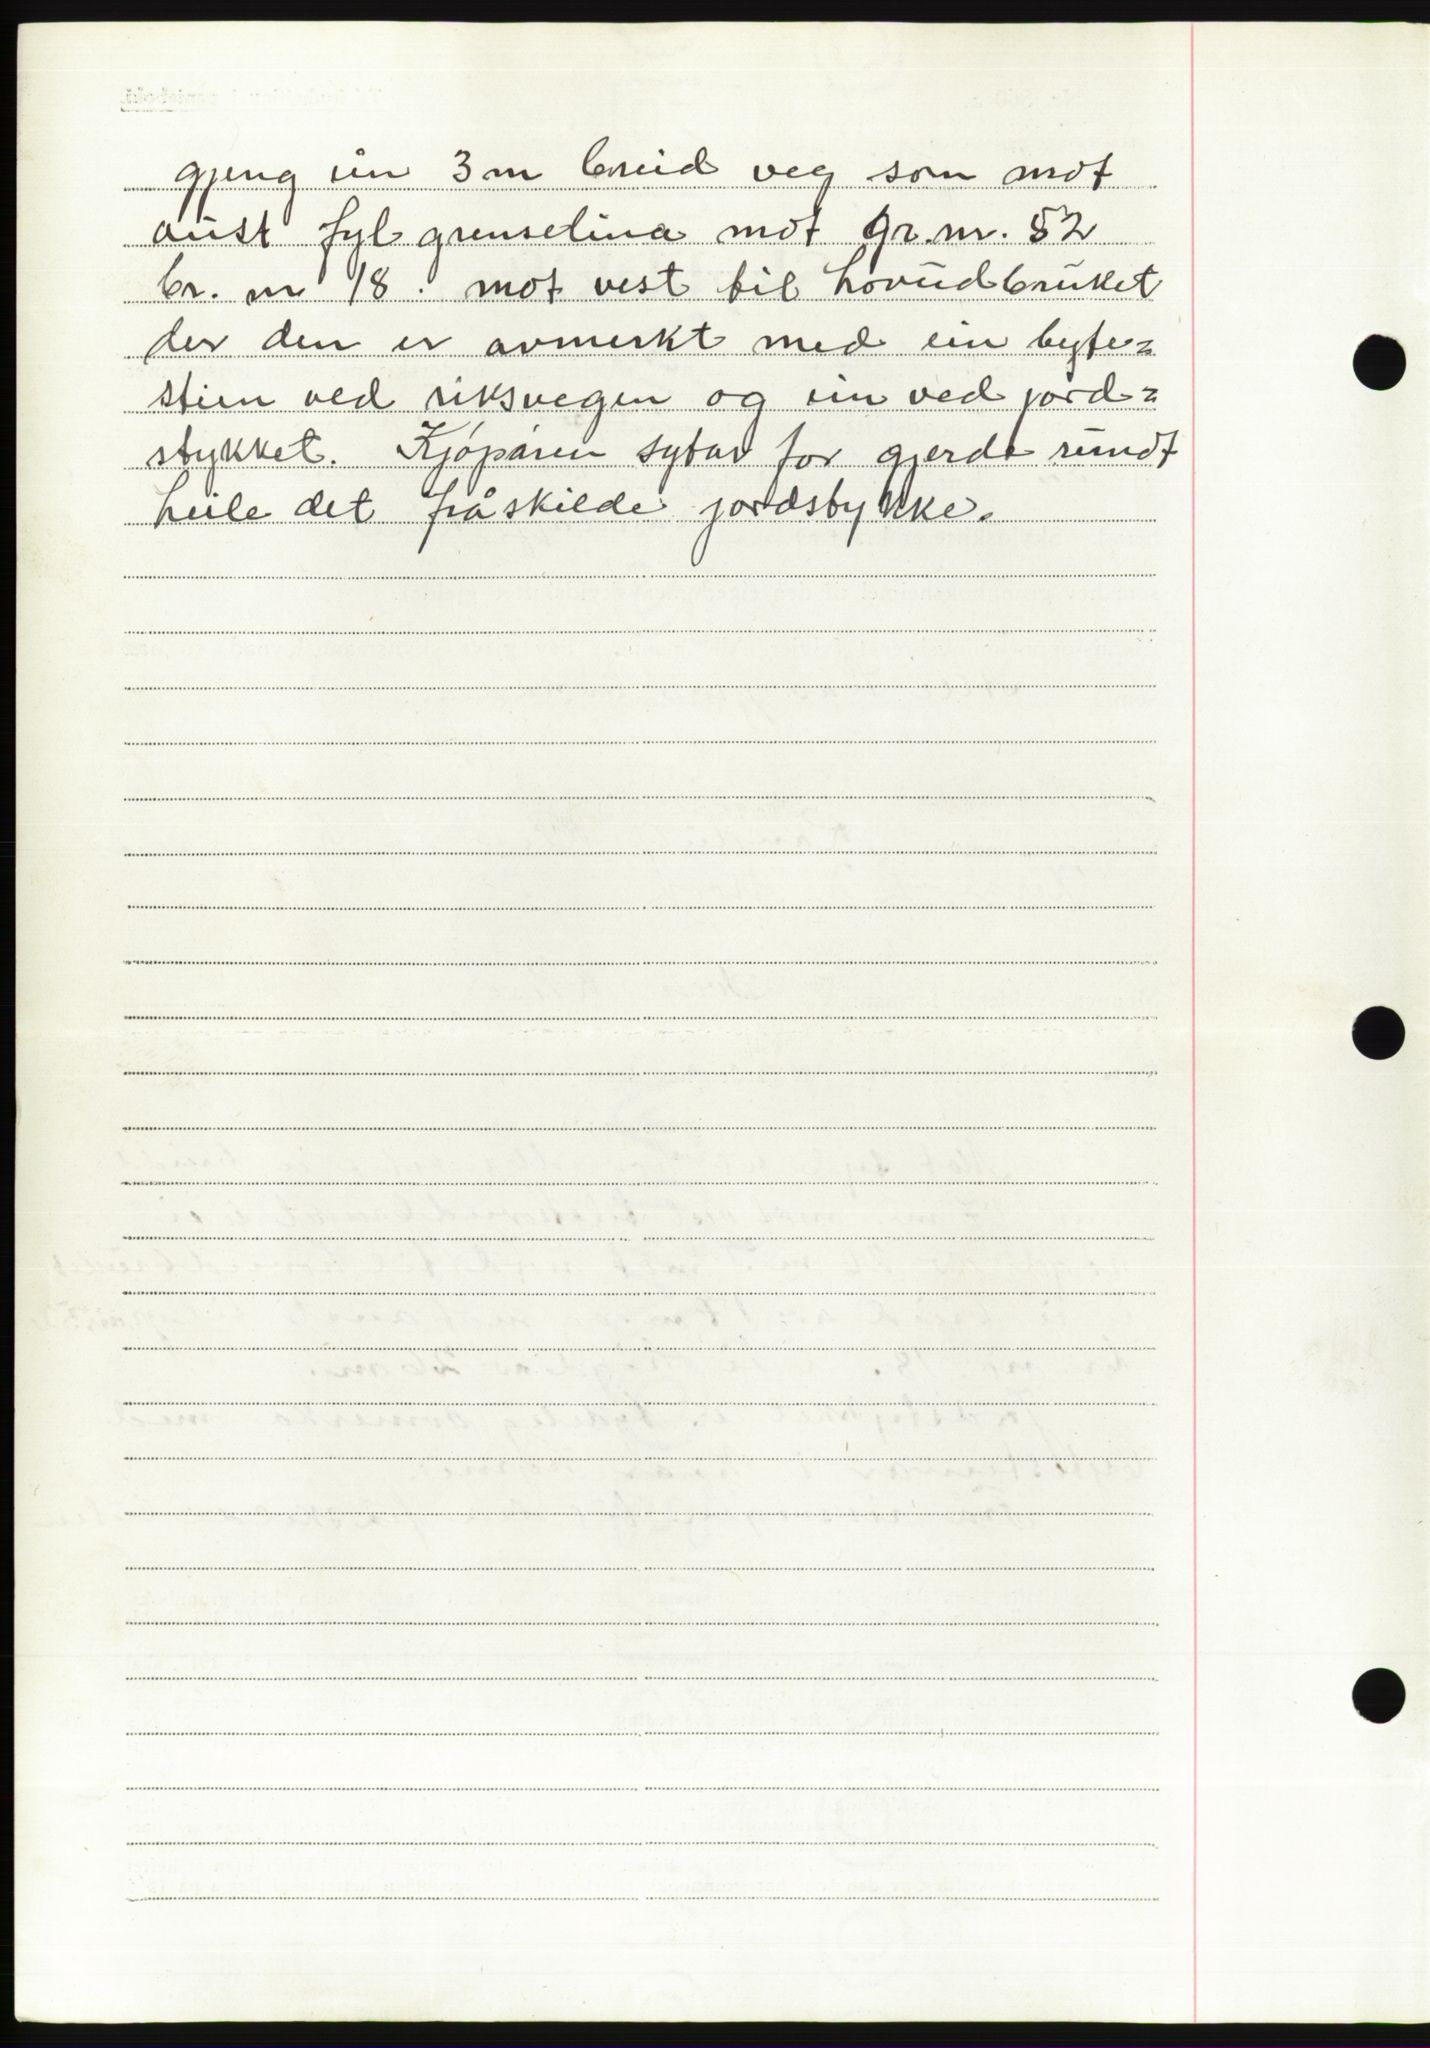 gjeng ein 3 m breid veg som mot
aust fyl grenselina mot gr.nr. 52
br. nr 18. mot vest til hovudbruket
der den er avmerkt med ein byte=
stein ved riksvegen og ein ved jord=
stykket. Kjøparen sytar for gjerde rundt
heile det fråskilde jordstykke.